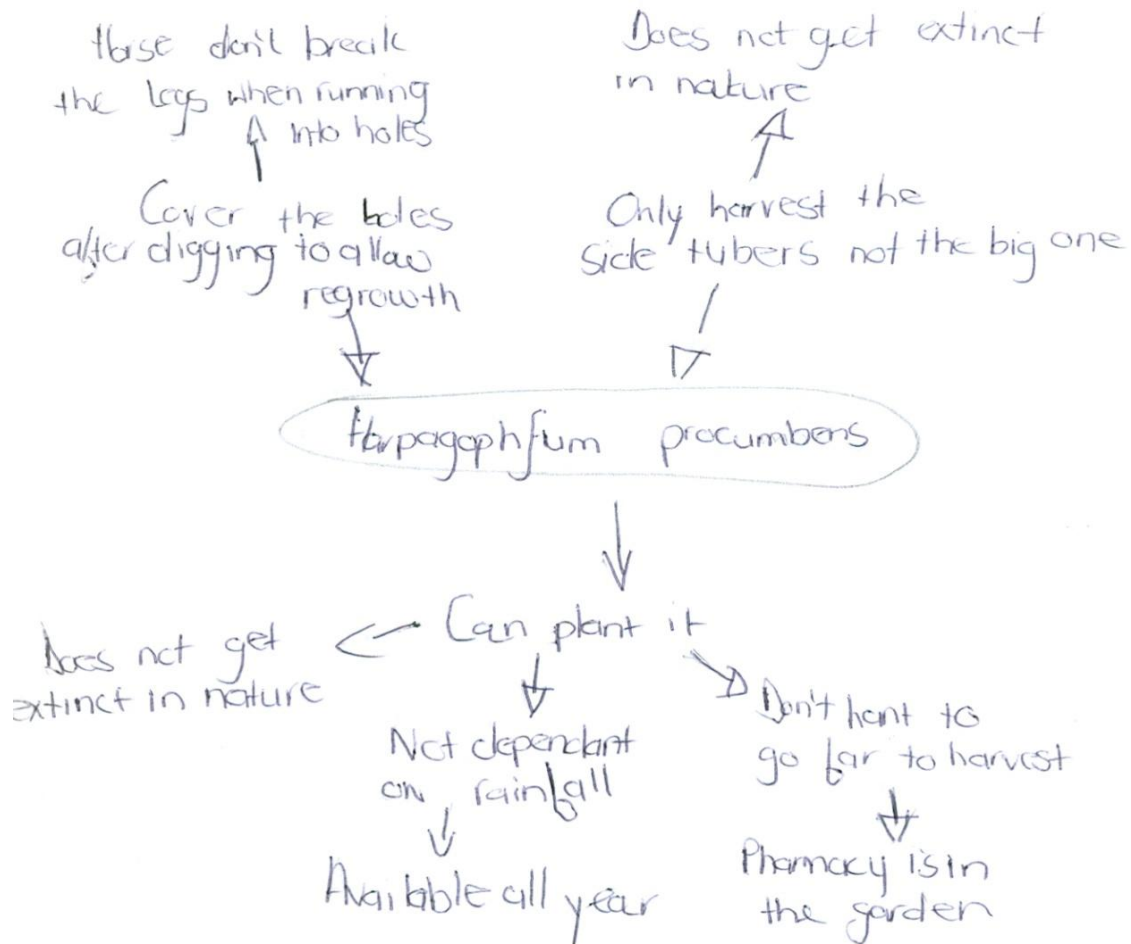 Horse don't break
the legs when running
into holes
Does not get extinct
in nature
Cover the holes
after digging to allow
regrowth
Only harvest the
side tubers not the big one
Harpagophfum procumbens
Can plant it
Does not get
extinct in nature
Not dependant
on rainfall
Available all year
Don't hant to
go far to harvest
Pharmacy is in
the garden